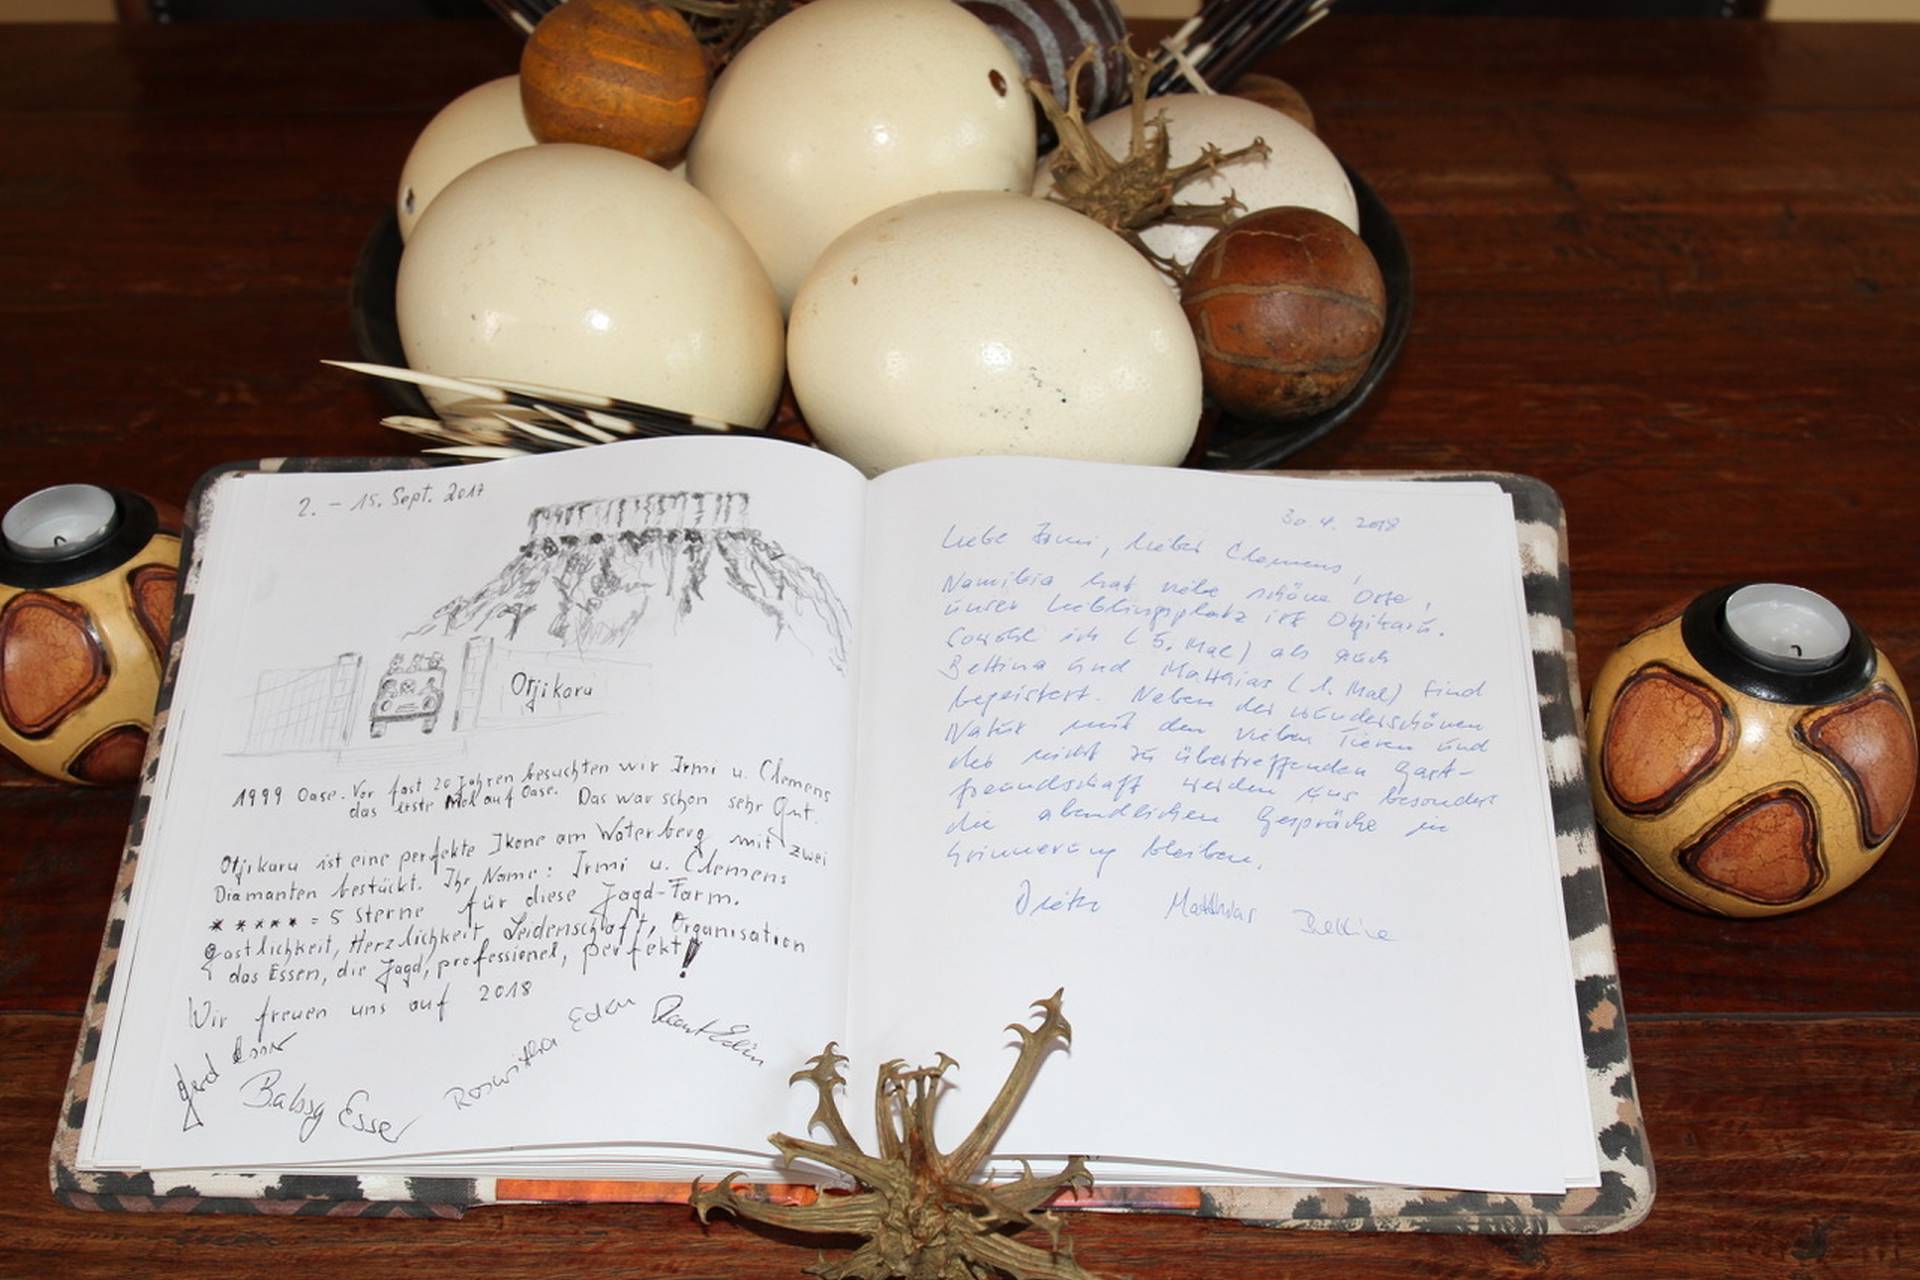 2. - 15. Sept. 2017
Otjikaru
1999 Oase. Vor fast 20 Jahren besuchten wir Irmi u. Clemens
das erste Mal auf Oase. Das war schon sehr Gut.
Otjikaru ist eine perfekte Ikone am Waterberg mit zwei
Diamanten bestückt. Ihr Name: Irmi u. Clemens
***** = 5 Sterne für diese Jagd-Farm.
Gastlichkeit, Herzlichkeit, Leidenschaft, Organisation
das Essen, die Jagd, professionel, perfekt!
Wir freuen uns auf 2018
Gerd Esser
Esser
Roswitha Eden
30.4. 2018
Liebe Irmi, lieber Clemens,
Namibia hat viele schöne Orte,
unser Lieblingsplatz ist Otjikaru.
Sowohl ich (5. Mal) als auch
Bettina und Matthias (1. Mal) sind
begeistert. Neben der wunderschönen
Natur mit den vielen Tieren und
der nicht zu übertreffenden Gast-
freundschaft werden uns besonders
die abendlichen Gespräche in
Erinnerung bleiben.
Dieter Matthias Bettina